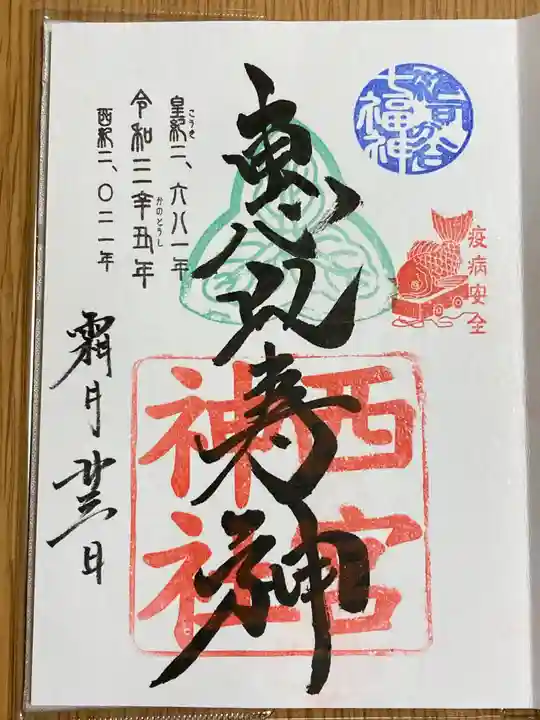 七福神
疫病安全
恵比寿神
西宮
神社
皇紀二、六八一年
こうき
令和三辛丑年
かのとうし
西紀二、〇二一年
霜月廿三日